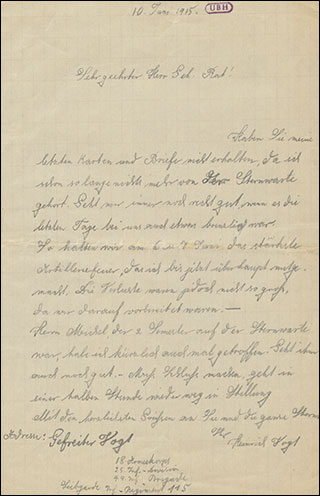 10. Juni 1915.
UBH
Sehr geehrter Herr Geh. Rat!
Haben Sie meine
letzten Karten und Briefe nicht erhalten, da ich
schon so lange nichts mehr von Ihrer Sternwarte
gehört. Geht mir immer noch recht gut, wenn es die
letzten Tage bei uns auch etwas brenzlich war.
So hatten wir am 6 u. 7 Juni das stärkste
Artilleriefeuer, das ich bis jetzt überhaupt mitge-
macht. Die Verluste waren jedoch nicht so groß,
da wir darauf vorbereitet waren. —
Herrn der 2 Semester auf der Sternwarte
war, habe ich kürzlich auch mal getroffen. Geht ihm
auch noch gut. — Muß Schluß machen, geht in
einer halben Stunde wieder weg in Stellung
Mit den herzlichsten Grüßen an Sie und die ganze Sternw.
Ihr
Heinrich Vogt
Adresse: Gefreiter Vogt
18 Armeekorps
25. Inf.-Division
49. Inf. Brigade
Leibgarde Inf.-Regiment 115